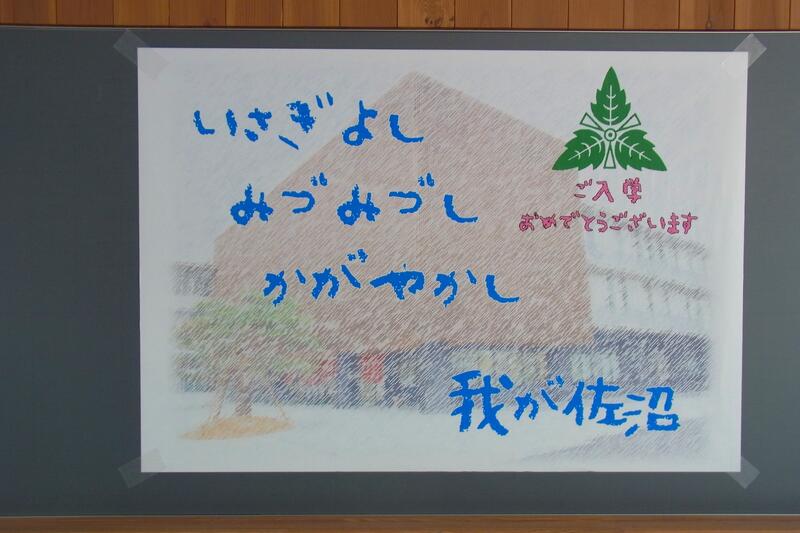 いさぎよし
みづみづし
かがやかし
我が佐沼
ご入学
おめでとうございます